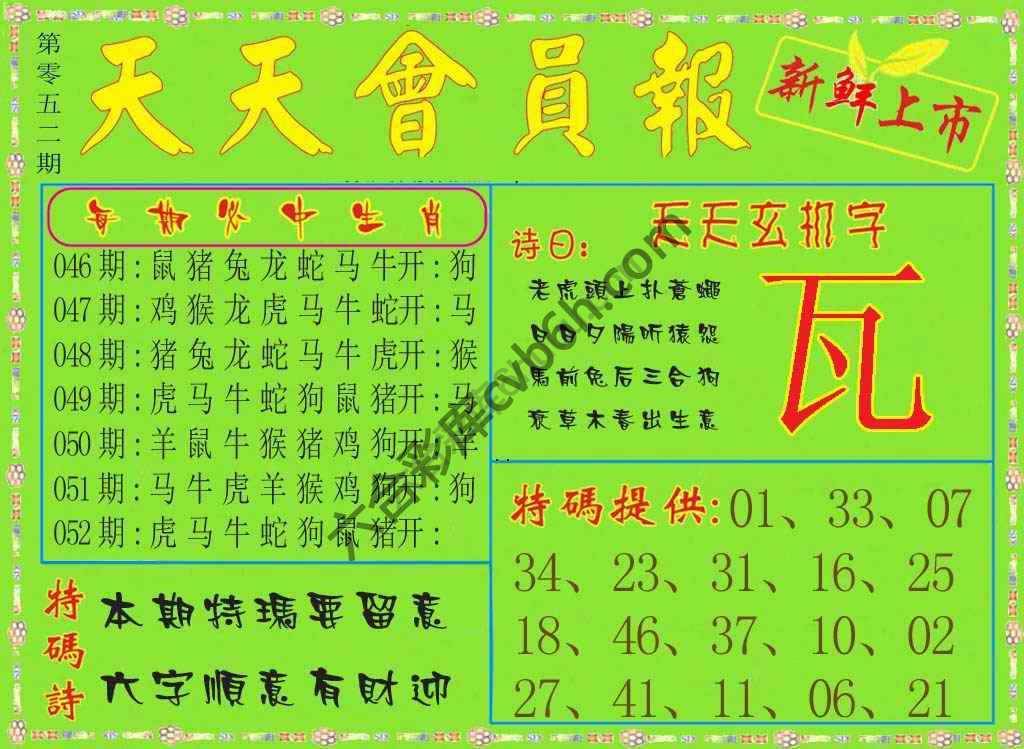 第零五二期
天天會員報
新鮮上市
每期必中生肖
046期:鼠猪兔龙蛇马牛开:狗
047期:鸡猴龙虎马牛蛇开:马
048期:猪兔龙蛇马牛虎开:猴
049期:虎马牛蛇狗鼠猪开:马
050期:羊鼠牛猴猪鸡狗开:羊
051期:马牛虎羊猴鸡狗开:狗
052期:虎马牛蛇狗鼠猪开:
天天玄机字
诗曰:
老虎頭上扑蒼蠅
日日夕陽听猿怨
馬前兔后三合狗
衰草木春出生意
瓦
特碼提供:01、33、07
34、23、31、16、25
18、46、37、10、02
27、41、11、06、21
特碼詩
本期特瑪要留意
六字順意有財迎
六合彩库cvb6h.com